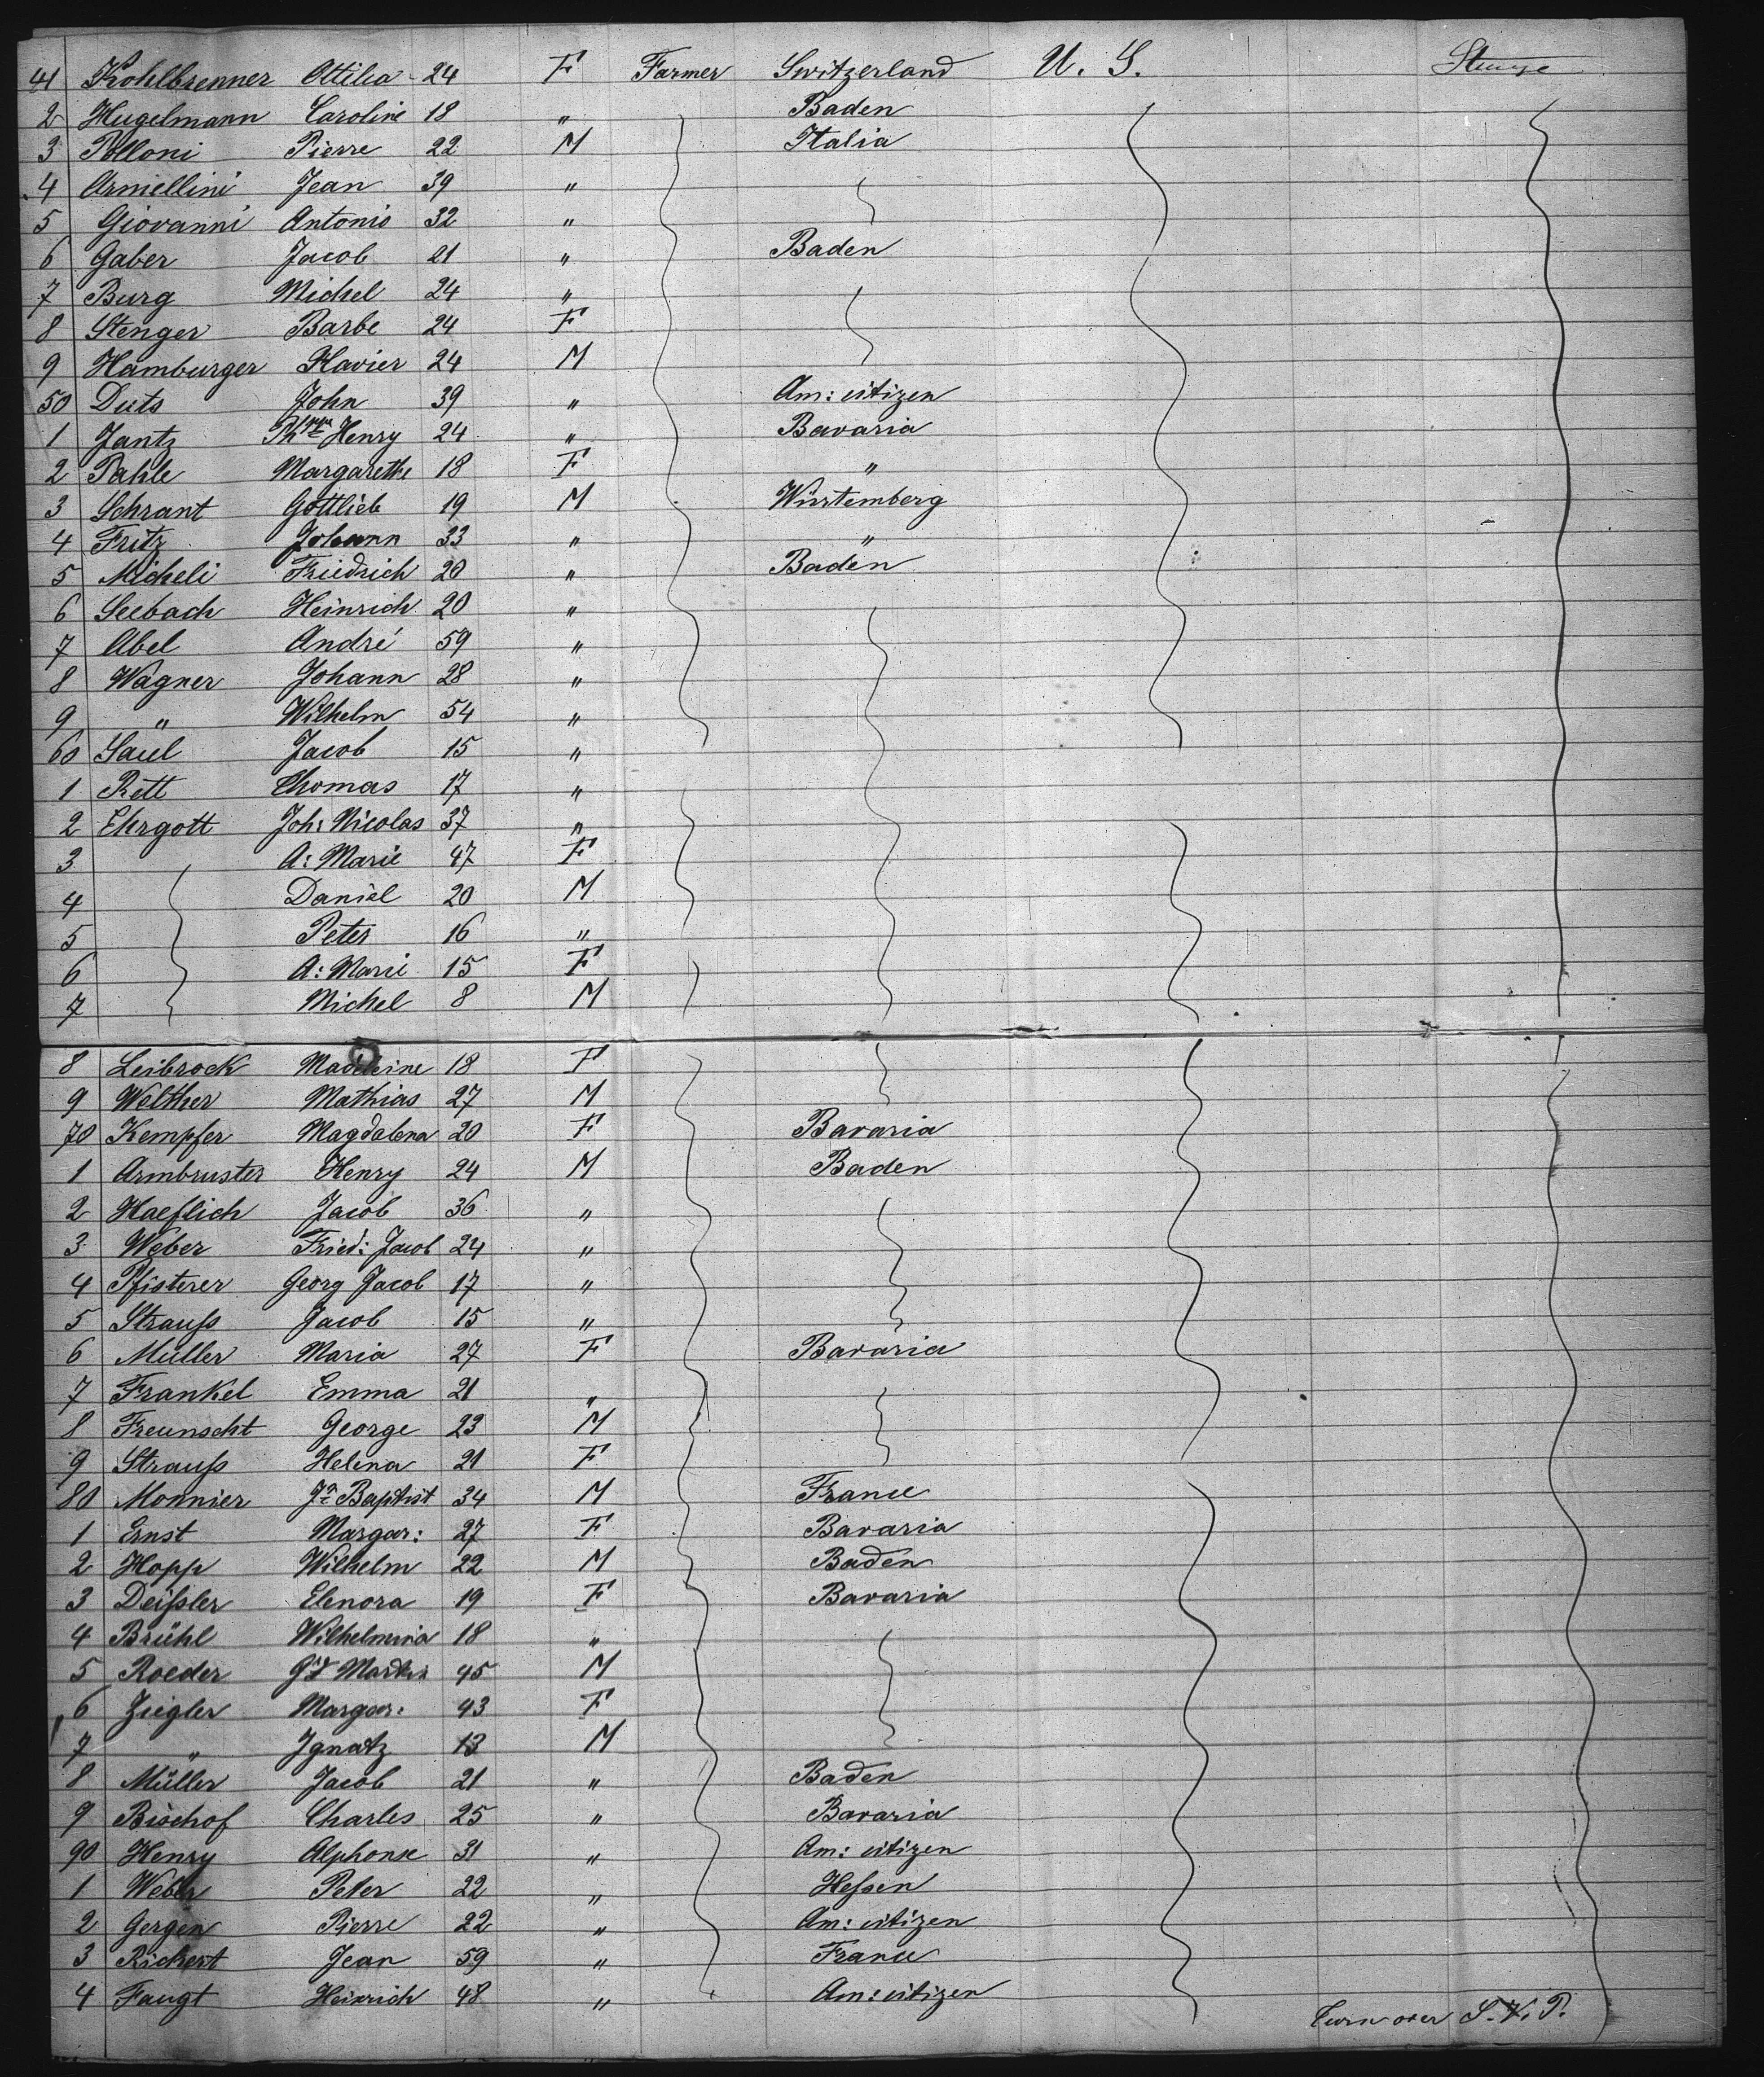 41 Kohlbrenner Ottilia 24 F Farmer Switzerland U. S.
2 Hugelmann Caroline 18 " Baden
3 Polloni Pierre 22 M Italia
4 Armellini Jean 39 "
5 Giovanni Antonio 32 "
6 Gaber Jacob 21 " Baden
7 Burg Michel 24 "
8 Stenger Barbe 24 F
9 Hamburger Xavier 24 M
50 Duts John 39 " Am: citizen
1 Jantz Henry 24 " Bavaria
2 Pahle Margarethe 18 F "
3 Schrant Gottlieb 19 M Würtemberg
4 Fritz Johann 33 " "
5 Micheli Friedrich 20 " Baden
6 Seebach Heinrich 20 "
7 Abel André 59 "
8 Wagner Johann 28 "
9 " Wilhelm 54 "
60 Saul Jacob 15 "
1 Rett Thomas 17 "
2 Ehrgott Joh: Nicolas 37 "
3 A: Marie 47 F
4 Daniel 20 M
5 Peter 16 "
6 A: Marie 15 F
7 Michel 8 M
8 Leibrock Madeleine 18 F
9 Welther Mathias 27 M
70 Kempfer Magdalena 20 F Bavaria
1 Armbruster Henry 24 M Baden
2 Haeflich Jacob 36 "
3 Weber Fried: Jacob 24 "
4 Pfisterer Georg Jacob 17 "
5 Strauſs Jacob 15 "
6 Müller Maria 27 F Bavaria
7 Frankel Emma 21 "
8 Freunscht George 23 M
9 Strauſs Helena 21 F
80 Monnier Jn Baptist 34 M France
1 Ernst Margar: 27 F Bavaria
2 Hopp Wilhelm 22 M Baden
3 Deiſsler Elenora 19 F Bavaria
4 Brühl Wilhelmina 18 "
5 Roeder Martin 45 M
6 Ziegler Margar: 43 F
7 " Ignatz 13 M
8 Müller Jacob 21 " Baden
9 Bischof Charles 25 " Bavaria
90 Henry Alphonse 31 " Am: citizen
1 Weber Peter 22 " Heſsen
2 Gergen Pierre 22 " Am: citizen
3 Richert Jean 59 " France
4 Faugt Heinrich 48 " Am: citizen
Turn over S. V. P.